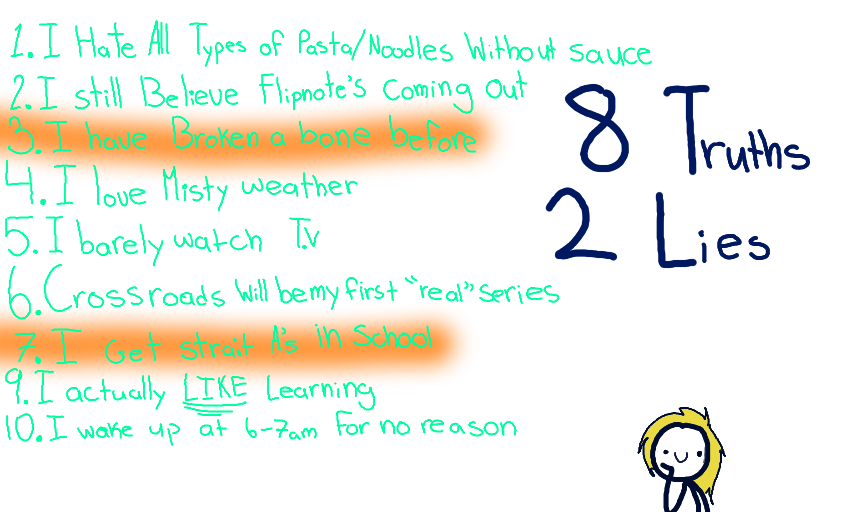 1. I Hate All Types of Pasta/Noodles Without sauce
2. I still Believe Flipnote's Coming Out
3. I have Broken a bone before
4. I love Misty weather
5. I barely watch T.v
6. Crossroads Will be my first "real" series
7. I Get strait A's in School
9. I actually LIKE Learning
10. I wake up at 6-7am For no reason
8 Truths
2 Lies